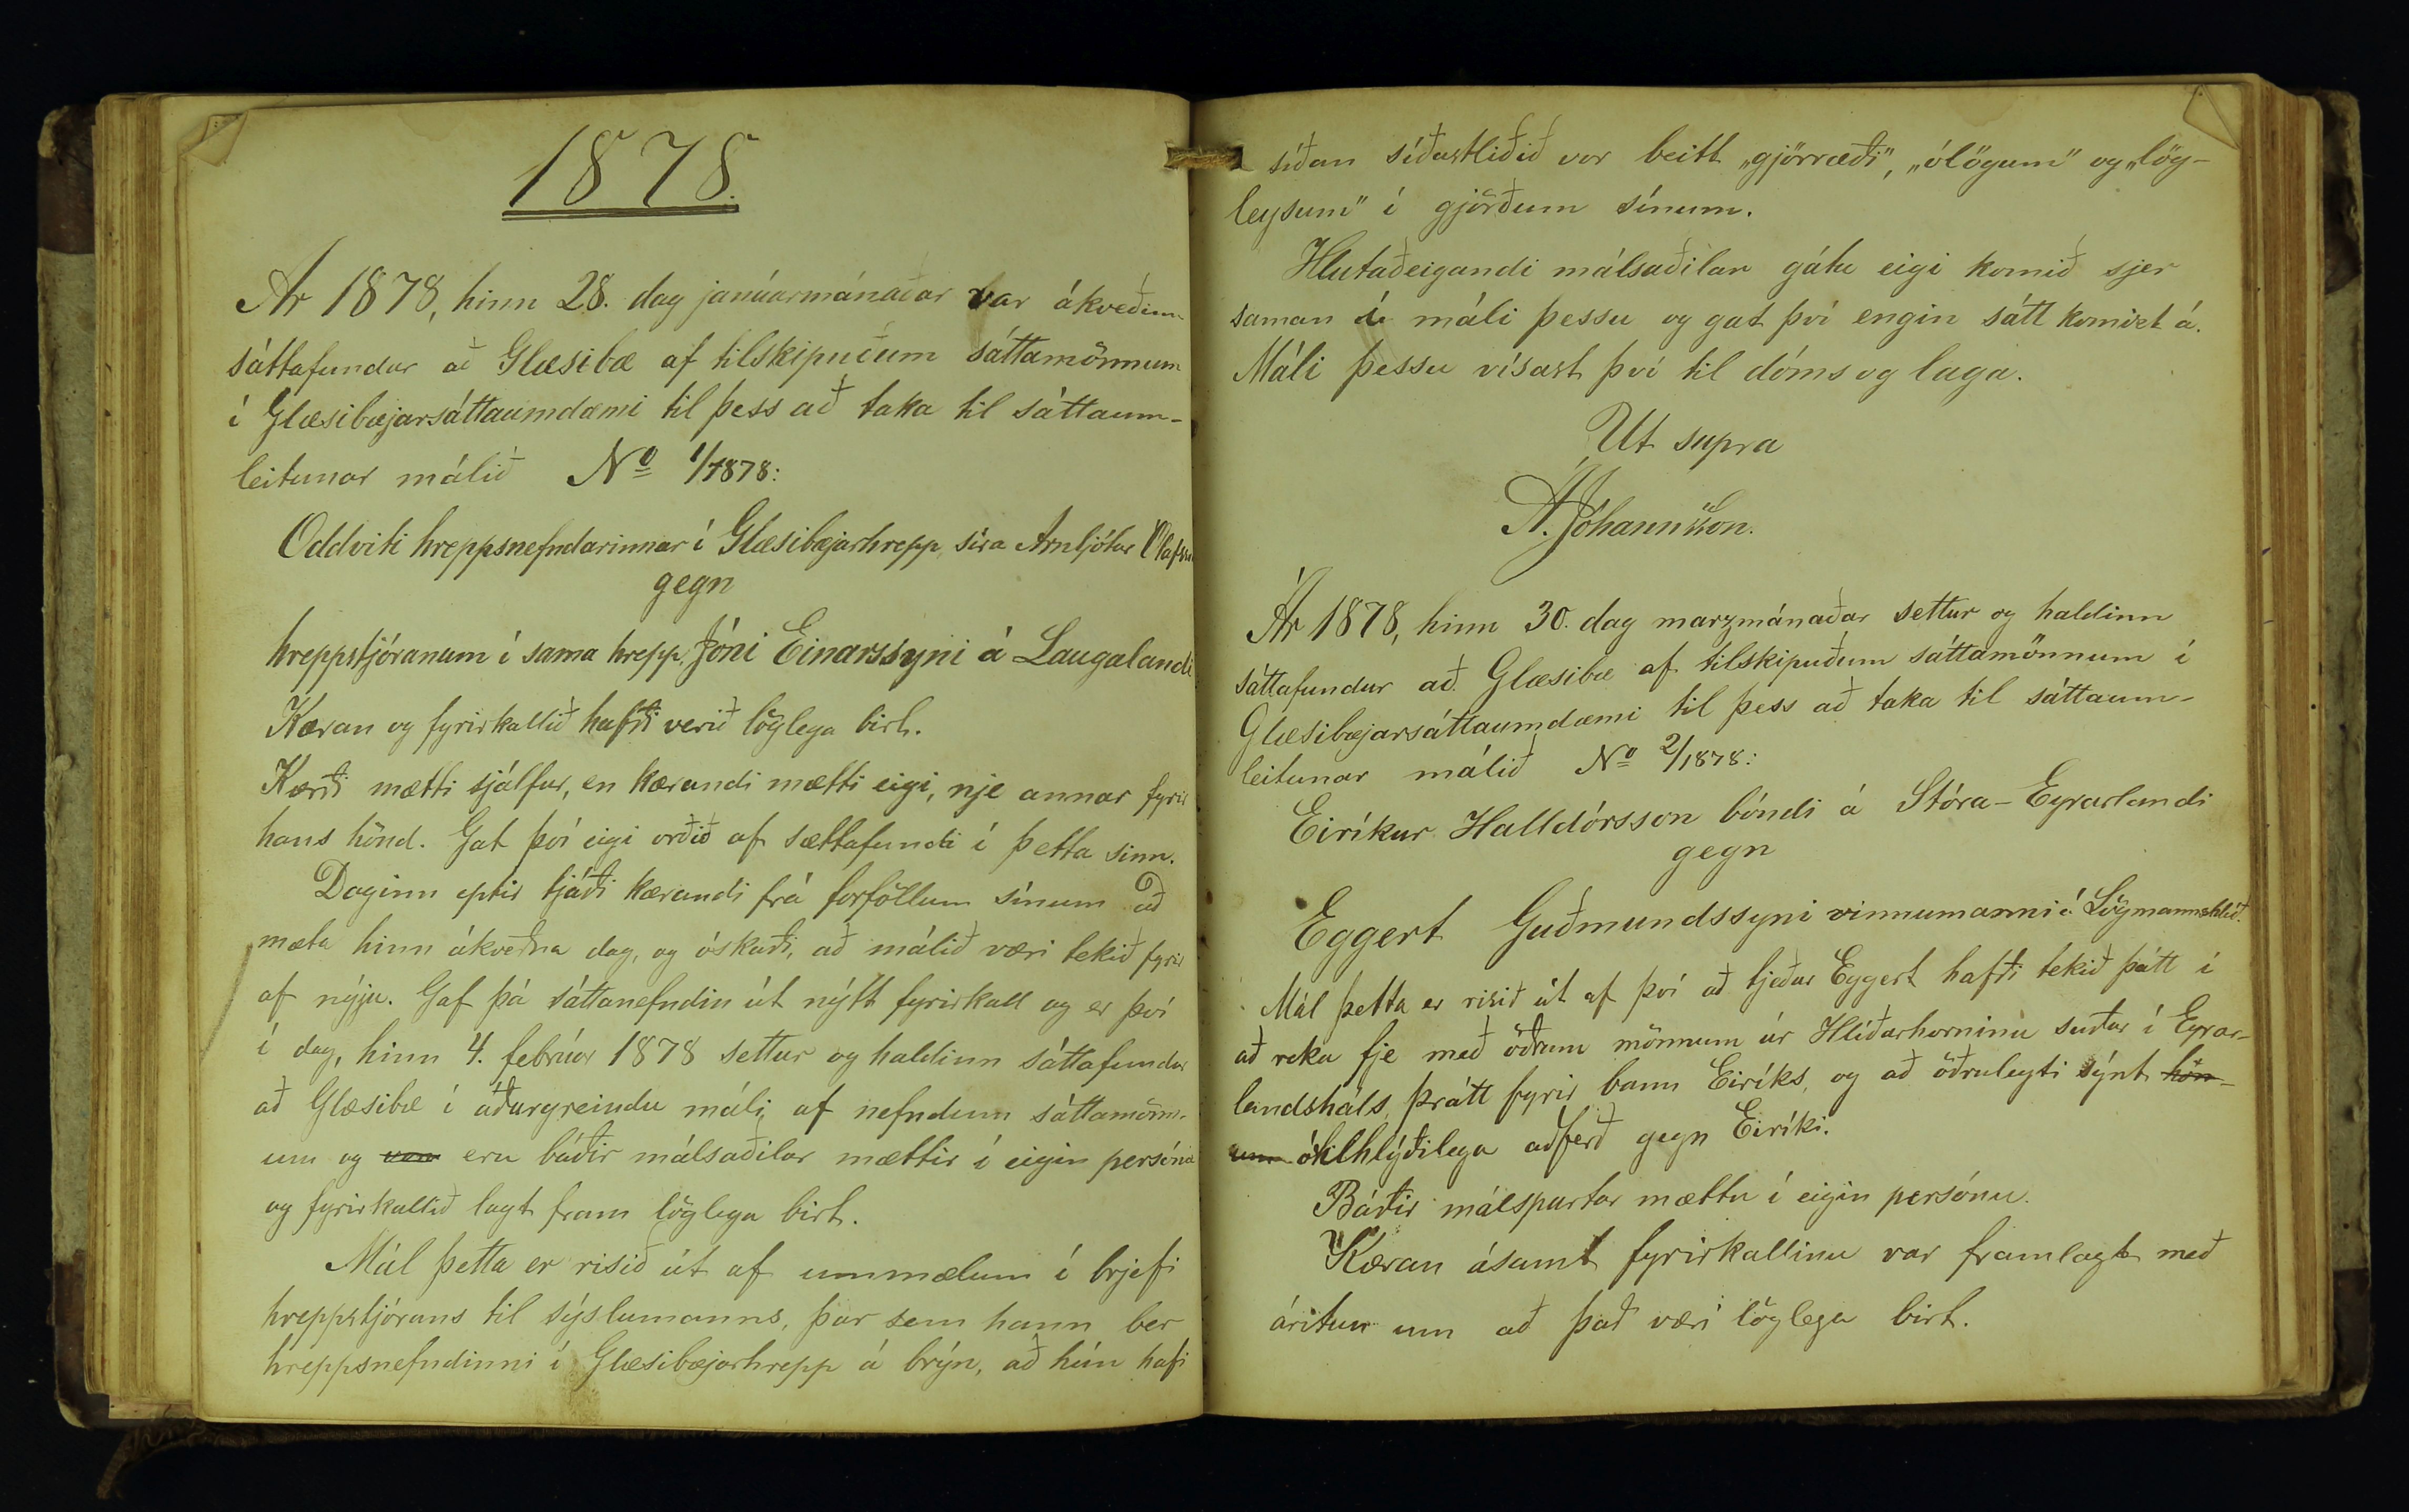 1878.
Ár 1878, hinn 28. dag janúarmánaðar var ákveðinn
sáttafundur að Glæsibæ af tilskipuðum sáttamönnum
í Glæsibæjarsáttaumdæmi til þess að taka til sáttaum-
leitunar málið No 1/1878:
Oddviti hreppsnefndarinnar í Glæsibæjarhrepp, síra Arnljótur Ólafsson
gegn
hreppstjóranum í sama hrepp, Jóni Einarssyni á Laugalandi
Kæran og fyrirkallið hafði verið löglega birt.
Kærði mætti sjálfur, en kærandi mætti eigi, nje annar fyrir
hans hönd. Gat því eigi orðið af sættafundi í þetta sinn.
Daginn eptir tjáði kærandi frá forföllum sínum að
mæta hinn ákveðna dag, og óskaði, að málið væri tekið fyrir
af nýju. Gaf þá sáttanefndin út nýtt fyrirkall og er því
í dag, hinn 4. febrúar 1878 settur og haldinn sáttafundur
að Glæsibæ í áðurgreindu máli af nefndum sáttamönn-
um og eru báðir málsaðilar mættir í eigin persónu
og fyrirkallið lagt fram löglega birt.
Mál þetta er risið út af ummælum í brjefi
hreppstjórans til sýslumanns, þar sem hann ber
hreppsnefndinni í Glæsibæjarhrepp á brýn, að hún hafi
síðan síðastliðið vor beitt „gjörræði", „ólögum" og „lög-
leysum" í gjörðum sínum.
Hlutaðeigandi málsaðilar gátu eigi komið sjer
saman í máli þessu og gat því engin sátt komizt á.
Máli þessu vísast því til dóms og laga.
Ut supra
Á. Jóhannsson.
Ár 1878, hinn 30. dag marzmánaðar settur og haldinn
sáttafundur að Glæsibæ af tilskipuðum sáttamönnum í
Glæsibæjarsáttaumdæmi til þess að taka til sáttaum-
leitunar málið No 2/1878:
Eiríkur Halldórsson bóndi á Stóra-Eyrarlandi
gegn
Eggert Guðmundssyni vinnumanni á Lögmannshlíð.
Mál þetta er risið út af því að tjeður Eggert hafði tekið þátt í
að reka fje með öðrum mönnum úr Hlíðarhorninu suður í Eyrar-
landsháls, þrátt fyrir bann Eiríks, og að öðruleyti sýnt hön-
um ótilhlýðilega aðferð gegn Eiríki.
Báðir málspartar mættu í eigin persónu.
Kæran ásamt fyrirkallinu var framlagt með
áritun um að það væri löglega birt.